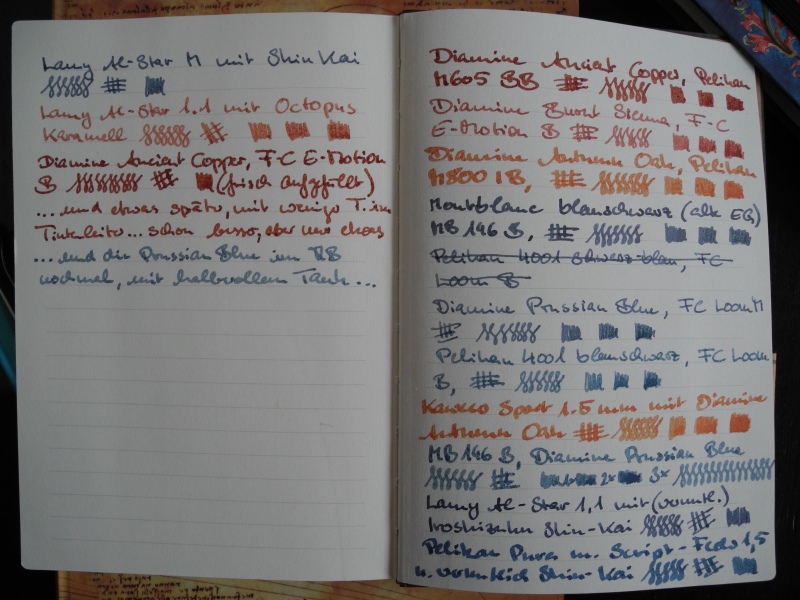 Lamy Al-Star M mit Shin Kai
Lamy Al-Star 1.1 mit Octopus
Karamell
Diamine Ancient Copper, F-C E-Motion
B (frisch aufgefüllt)
... und etwas später, mit weniger T. im
Tintenleiter... schon besser, aber nur etwas
... und die Prussian Blue im
nochmal, mit halbvollem Tank...
Diamine Ancient Copper, Pelikan
M605 BB
Diamine Burnt Sienna, F-C
E-Motion B
Diamine Autumn Oak, Pelikan
M800 IB,
Montblanc blauschwarz (alte EG)
MB 146 B,
Pelikan 4001 schwarz-blau, FC
Loom B
Diamine Prussian Blue, FC Loom M
Pelikan 4001 blauschwarz, FC Loom
B,
Kaweco Sport 1.5 mm mit Diamine
Autumn Oak
MB 146 B, Diamine Prussian Blue
1x 2x 3x
Lamy Al-Star 1,1 mit (vermtl.)
Iroshizuku Shin-Kai
Pelikan Pura m. Script-Feder 1,5
u. Shin-Kai